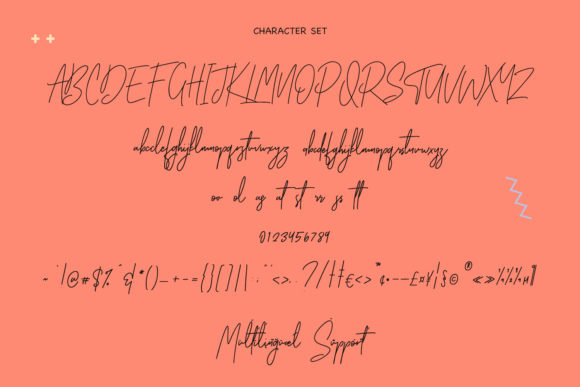 CHARACTER SET
ABCDEFGHIJKLMNOPQRSTUVWXYZ
abcdefghijklmnopqrstuvwxyz abcdefghijklmnopqrstuvwxyz
ov ol us at st rr ss tt
0123456789
~`!@#$%^&*()_+-={}[]|\:;"<>,.?/ ‡€<> •——£¤¥¦§©®«»
Multilingual Support